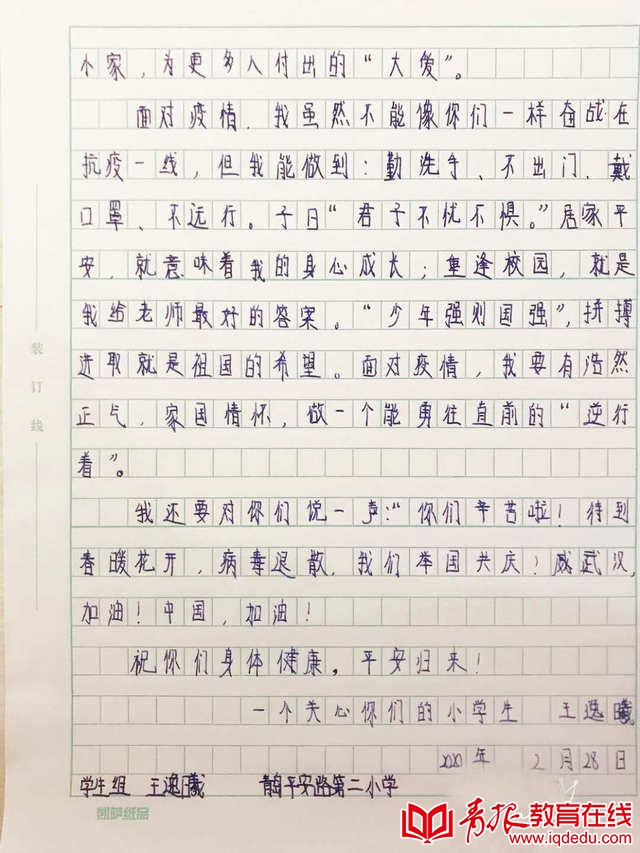 小家，为更多人付出的“大爱”。
面对疫情，我虽然不能像你们一样奋战在
抗疫一线，但我能做到：勤洗手、不出门、戴
口罩、不远行。子曰“君子不忧不惧。”居家平
安，就意味着我的身心成长；重逢校园，就是
我给老师最好的答案。“少年强则国强”，拼搏
进取就是祖国的希望。面对疫情，我要有浩然
正气，家国情怀，做一个能勇往直前的“逆行
着”。
我还要对你们说一声：“你们辛苦啦！待到
春暖花开，病毒退散，我们举国共庆！威武汉，
加油！中国，加油！
祝你们身体健康，平安归来！
一个关心你们的小学生 王逸曦
2020年 2月28日
学生组 王逸曦 青岛平安路第二小学
装订线
凯萨纸品
青报教育在线
www.iqdedu.com